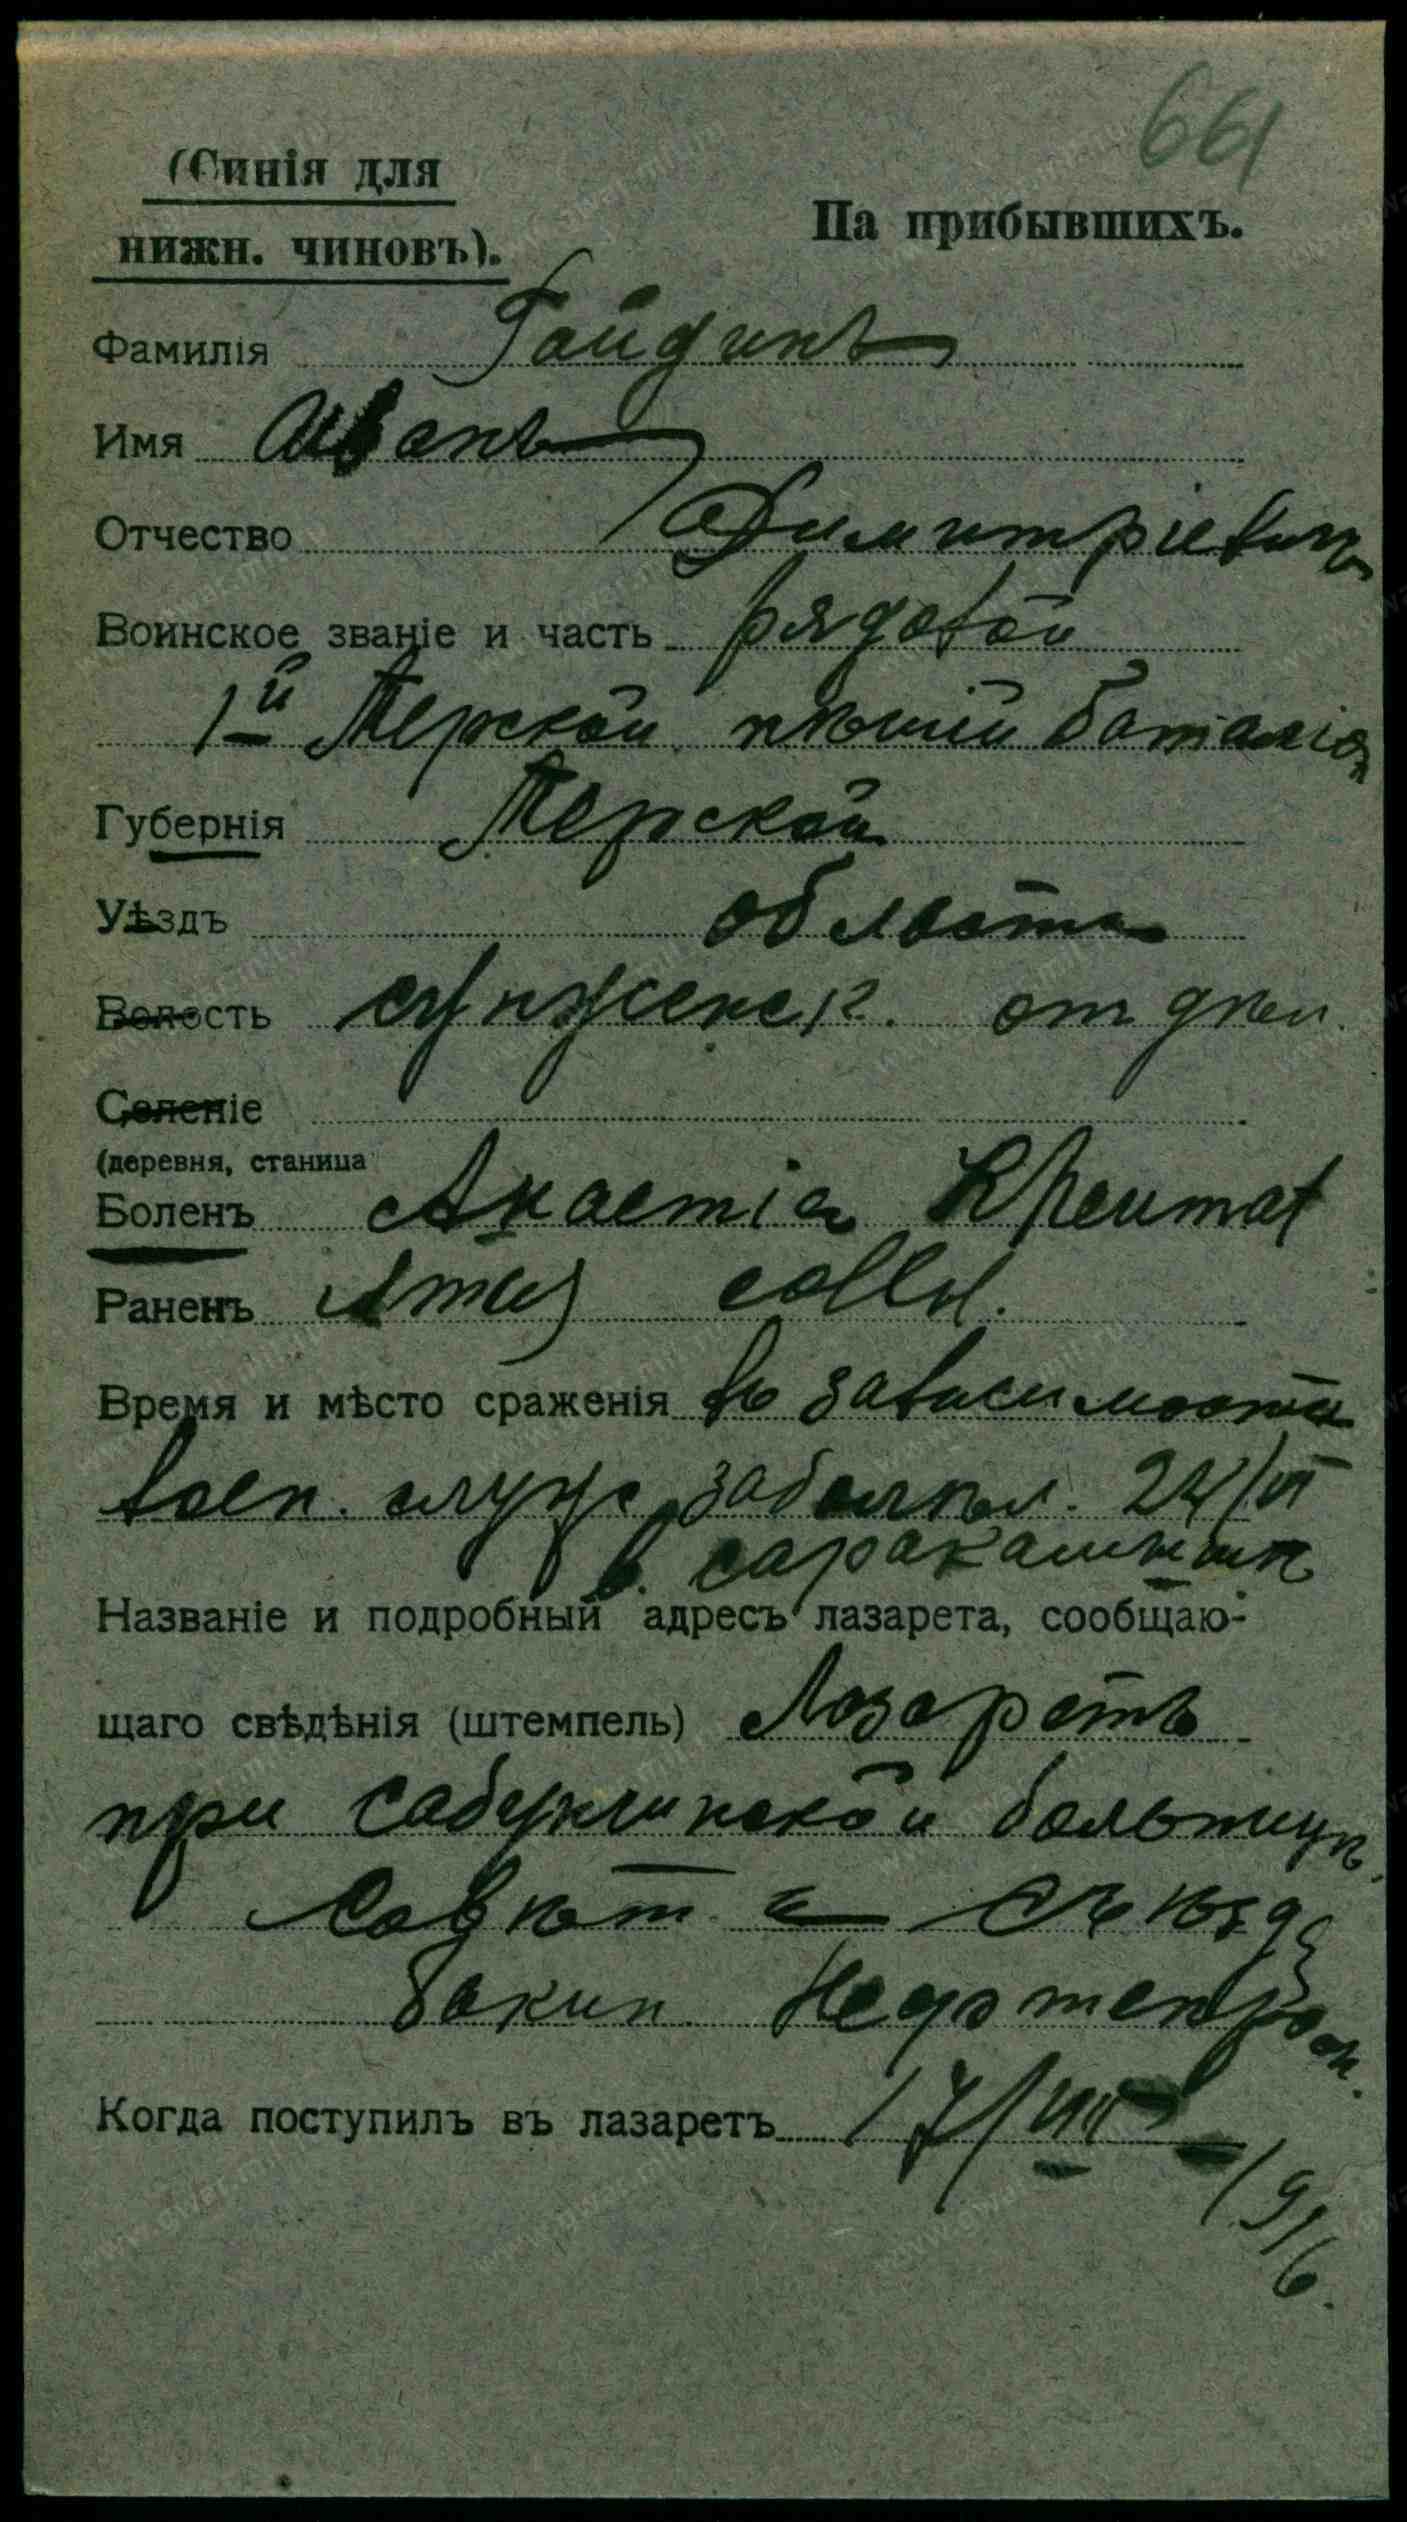 661
(Синія для
нижн. чиновъ).
На прибывшихъ.
Фамилія Гайдинъ
Имя Иванъ
Отчество Димитріевичъ
Воинское званіе и часть рядовой
1й Терской пѣшій баталіон
Губернія Терской
Уѣздъ области
Волость сунженск. отдѣл.
Селеніе
(деревня, станица
Боленъ
Раненъ
Время и мѣсто сраженія въ зависимости
воен. служ. заболѣл. 24/VI
в. саракамышѣ
Названіе и подробный адресъ лазарета, сообщаю-
щаго свѣдѣнія (штемпель) Лазаретъ
при сабунчинской больницѣ
Совѣт а Съѣзда
бакин. Нефтепром.
Когда поступилъ въ лазаретъ 17/VIII
1916.